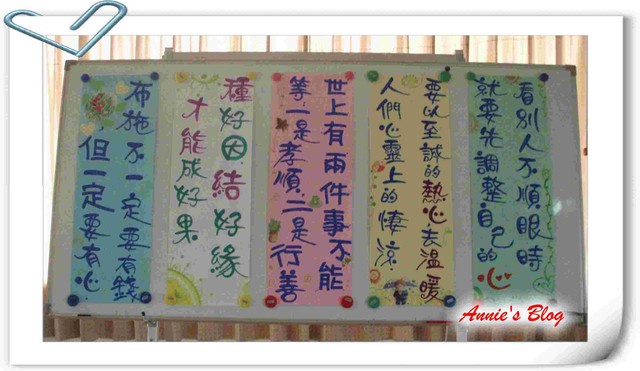 看別人不順眼時
就要先調整自己的心
要以至誠的熱心去溫暖
人們心靈上的悽涼
世上有兩件事不能
等一是孝順二是行善
種好因結好緣
才能成好果
布施不一定要有錢
但一定要有心
Annie's Blog